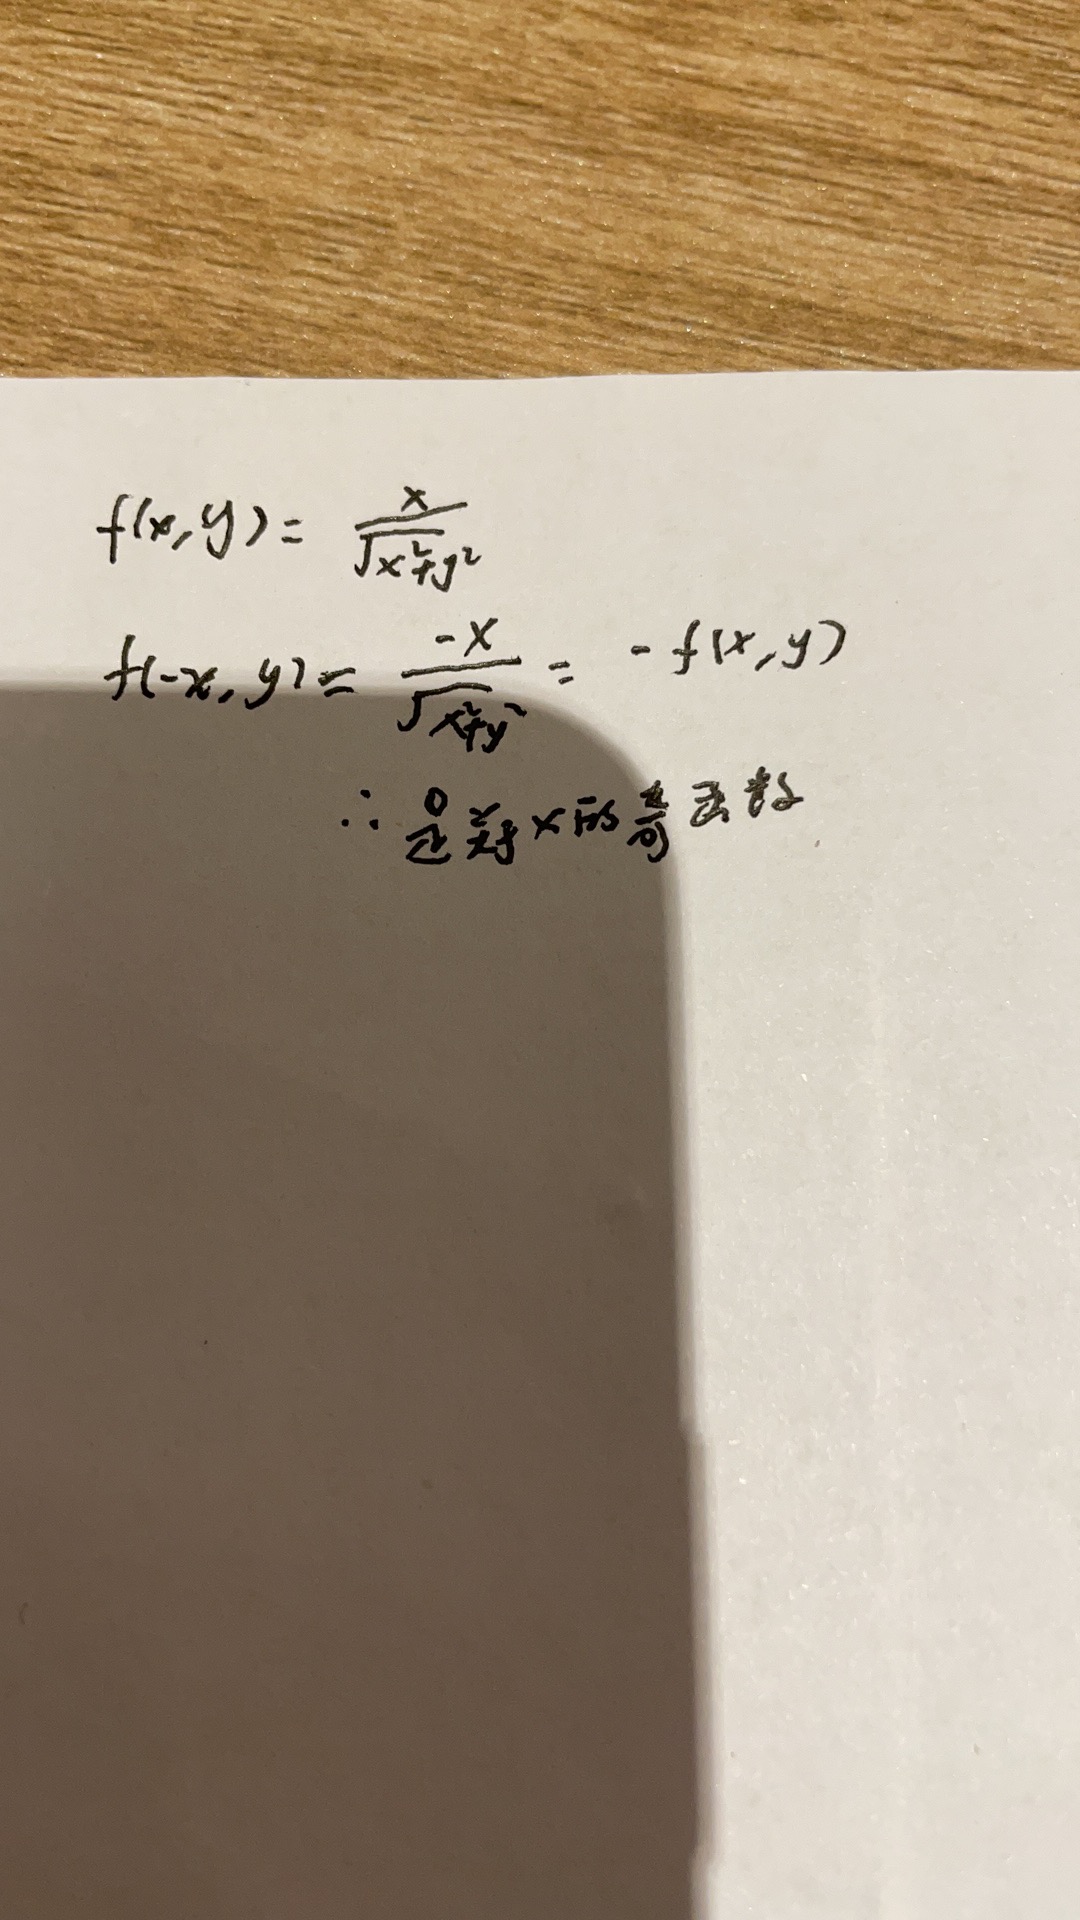 f(x,y)= x/√(x²+y²)
f(-x,y)= -x/√(x²+y²) = -f(x,y)
∴是对x的奇函数